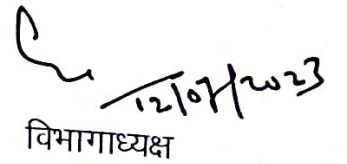 12/07/2023
विभागाध्यक्ष